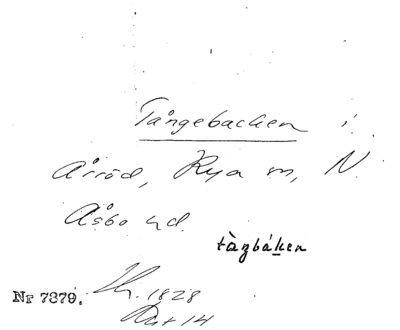 Tångebacken i
Årröd, Rya sn, N.
Åsbo hd.
tàŋbáken
Nr 7379. Lh. 1828
Rut 14